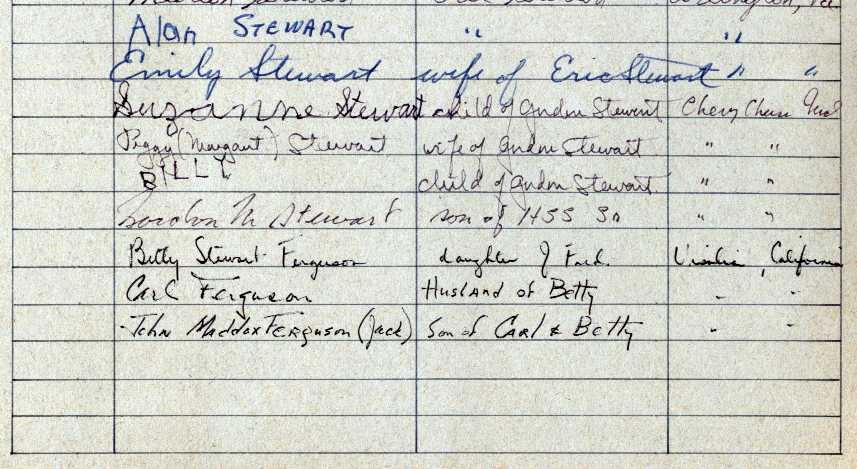 Alan STEWART " "
Emily Stewart wife of Eric Stewart " "
Suzanne Stewart child of Gordon Stewart Chevy Chase Md
Peggy (Margaret) Stewart wife of Gordon Stewart " "
BILLY child of Gordon Stewart " "
Gordon M Stewart son of HSS Sr " "
Betty Stewart Ferguson daughter of Fred. Visalia, California
Carl Ferguson Husband of Betty " "
John Maddox Ferguson (Jack) Son of Carl & Betty " "